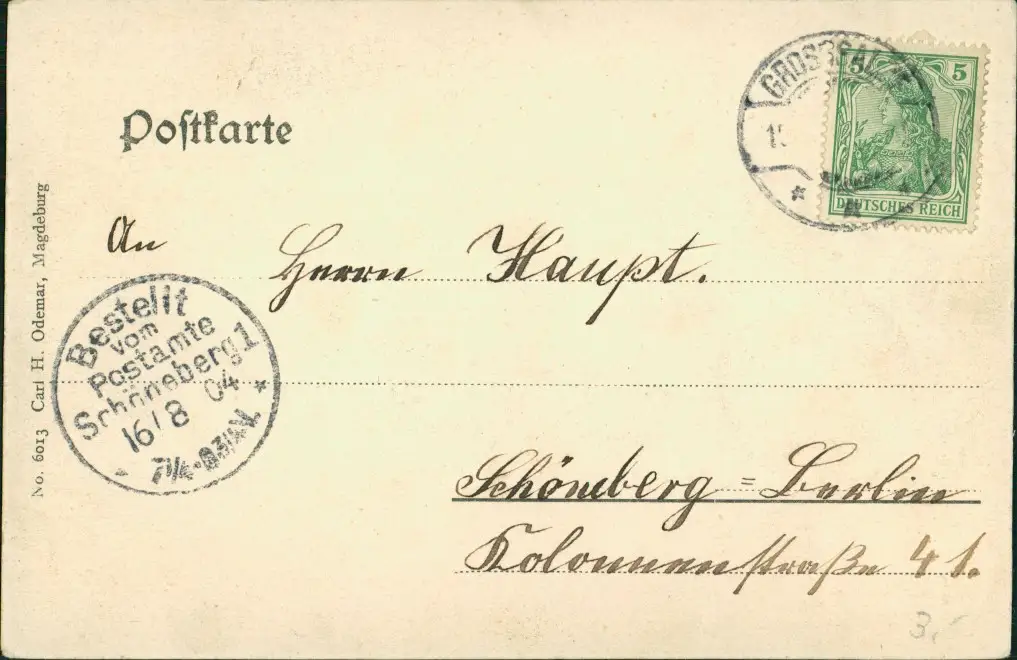 Postkarte
GROSS
15
5 5
DEUTSCHES REICH
An
Herrn Haupt.
Bestellt
vom
Postamte
Schöneberg 1
16/8 04
7¼-8¾V.
Schöneberg = Berlin
Kolonnenstraße 41.
3,-
No. 6013 Carl H. Odemar, Magdeburg